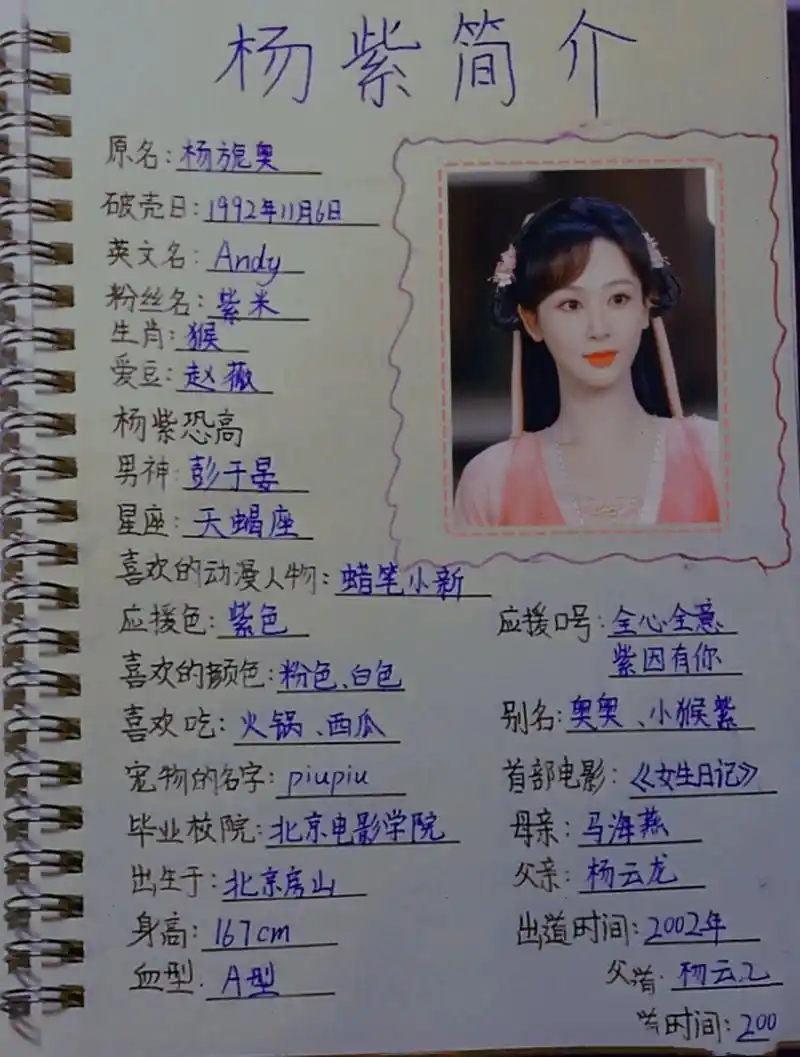 杨紫简介
原名:杨旎奥
破壳日:1992年11月6日
英文名:Andy
粉丝名:紫米
生肖:猴
爱豆:赵薇
杨紫恐高
男神:彭于晏
星座:天蝎座
喜欢的动漫人物:蜡笔小新
应援色:紫色
喜欢的颜色:粉色、白色
喜欢吃:火锅、西瓜
宠物的名字:piupiu
毕业校院:北京电影学院
出生于:北京房山
身高:167cm
血型:A型
应援口号:全心全意
紫因有你
别名:奥奥、小猴紫
首部电影:《女生日记》
母亲:马海燕
父亲:杨云龙
出道时间:2002年
父 杨云
时间:200